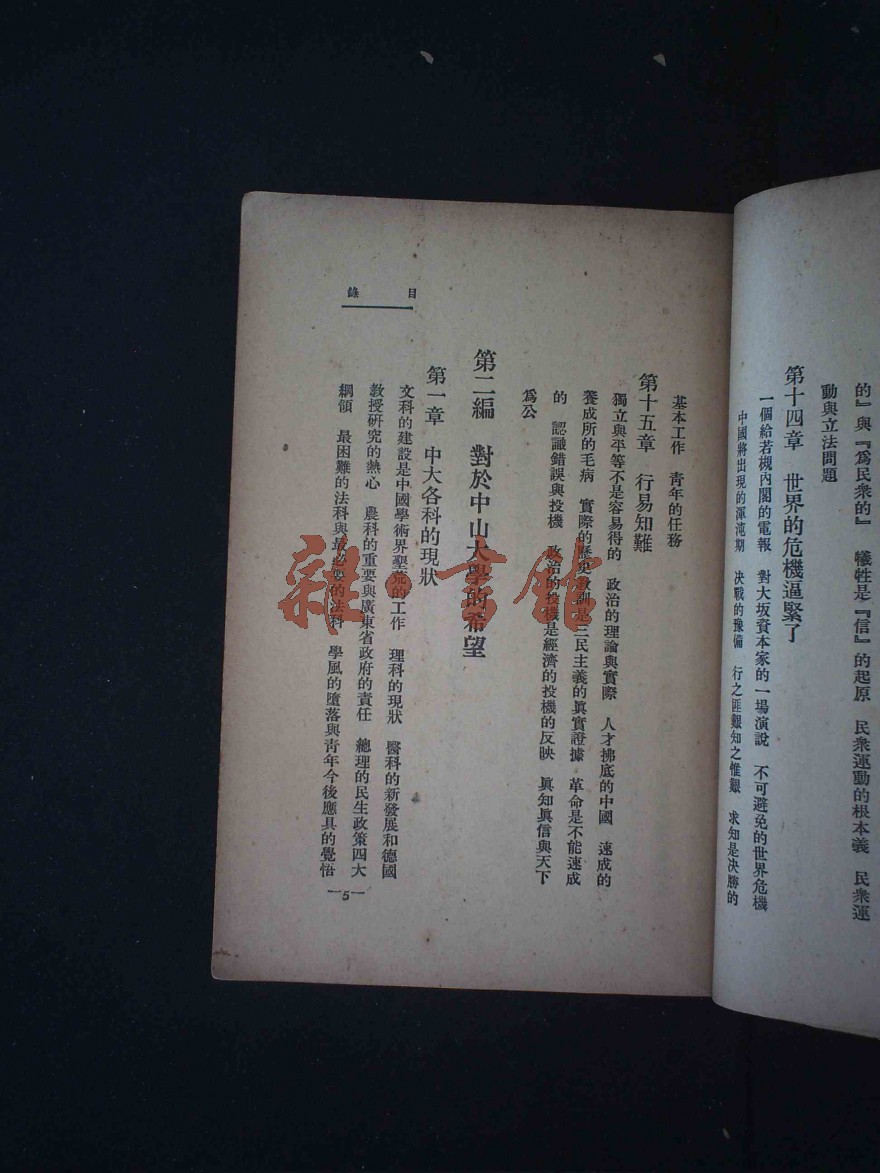 的』與『爲民衆的』 犧牲是『信』的起原 民衆運動的根本義 民衆運
動與立法問題
第十四章 世界的危機逼緊了
一個給若槻內閣的電報 對大坂資本家的一場演說 不可避免的世界危機
中國將出現的渾沌期 決戰的豫備 行之匪艱知之惟艱 求知是決勝的
基本工作 青年的任務
第十五章 行易知難
獨立與平等不是容易得的 政治的理論與實際 人才拂底的中國 速成的
養成所的毛病 實際的歷史敎訓是三民主義的眞實證據 革命是不能速成
的 認識錯誤與投機 政治的投機是經濟的投機的反映 眞知眞信與天下
爲公
第二編 對於中山大學的希望
第一章 中大各科的現狀
文科的建設是中國學術界墾荒的工作 理科的現狀 醫科的新發展和德國
敎授研究的熱心 農科的重要與廣東省政府的責任 總理的民生政策四大
綱領 最困難的法科與最必要的法科 學風的墮落與靑年今後應具的覺悟
目錄
—5—
雜·書館